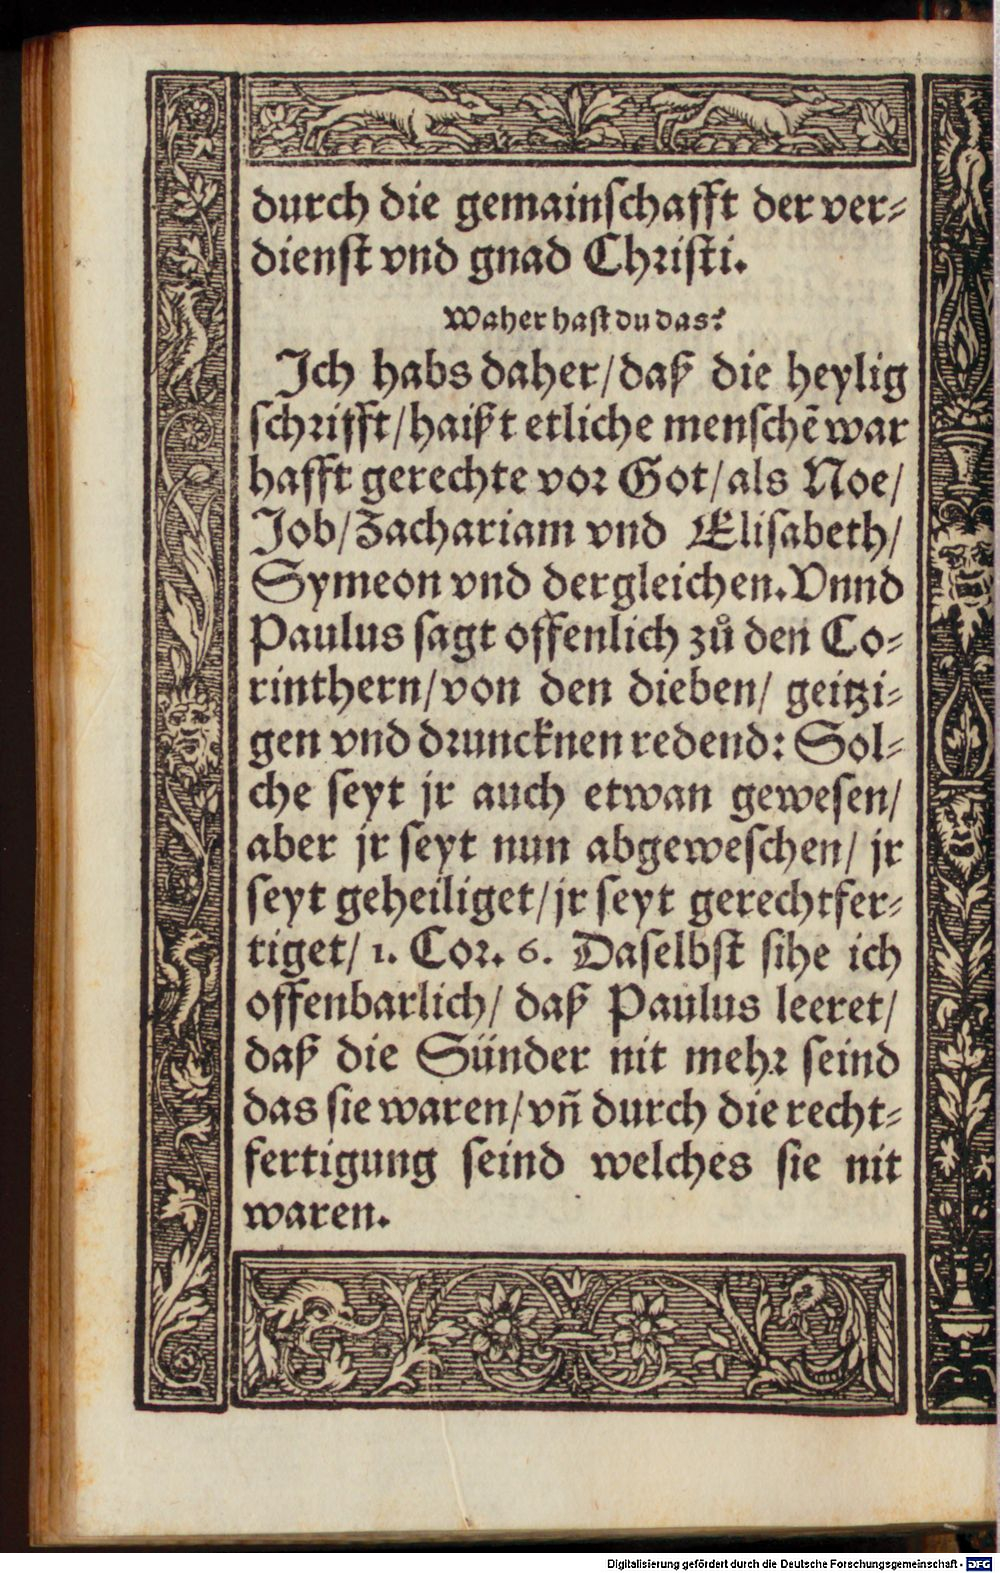 durch die gemainschafft der ver⸗
dienst vnd gnad Christi.
Waher hast du das?
Ich habs daher/daß die heylig
schrifft/haißt etliche menschẽ war
hafft gerechte vor Got/als Noe/
Job/Zachariam vnd Elisabeth/
Symeon vnd dergleichen. Vnnd
Paulus sagt offenlich zů den Co⸗
rinthern/von den dieben/ geitzi⸗
gen vnd druncknen redend: Sol⸗
che seyt jr auch etwan gewesen/
aber jr seyt nun abgeweschen/ jr
seyt geheiliget/jr seyt gerechtfer⸗
tiget/ 1. Cor. 6. Daselbst sihe ich
offenbarlich/ daß Paulus leeret/
daß die Sünder nit mehr seind
das sie waren/vñ durch die recht⸗
fertigung seind welches sie nit
waren.
Digitalisierung gefördert durch die Deutsche Forschungsgemeinschaft - DFG